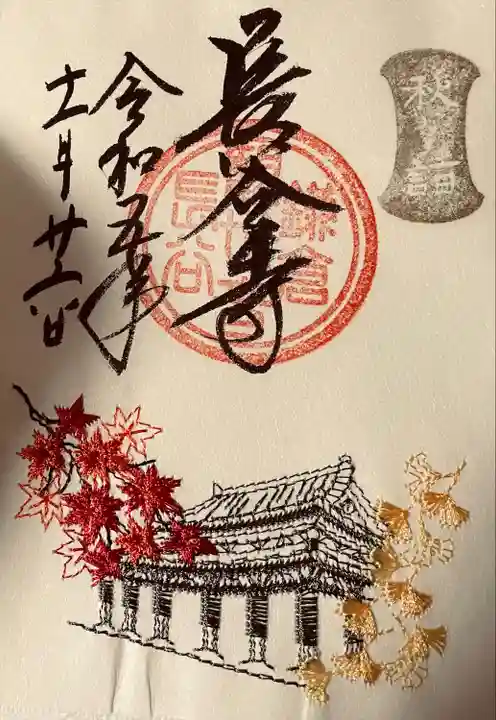 長谷寺
令和五年
十一月廿三日
鎌倉
長谷